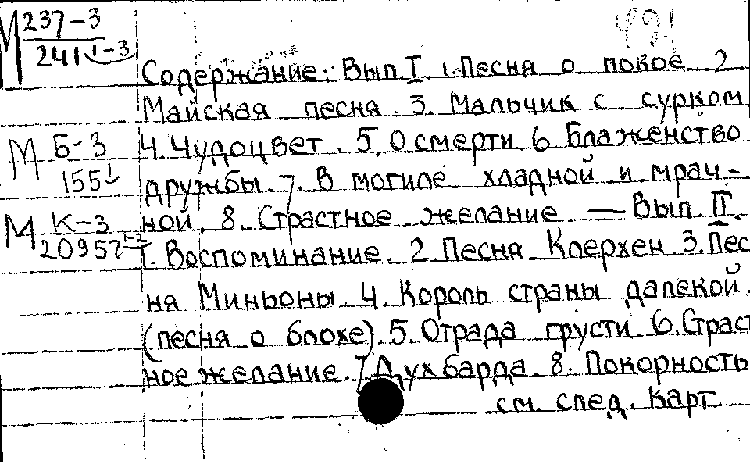 М 237-3
241 I-3
421
Содержание: Вып I 1. Песня о покое 2
Майская песня 3. Мальчик с сурком
М Б-3
155 I
4. Чудоцвет. 5. О смерти 6. Блаженство
дружбы. 7. В могиле хладной и мрач-
М К-3
20957
ной. 8. Страстное желание — Вып. II.
1. Воспоминание. 2. Песня Клерхен 3. Пес
ня Миньоны. 4. Король страны далекой.
(песня о блохе). 5. Отрада грусти 6. Страст
ное желание. 7. Дух барда. 8. Покорность
см. след. карт